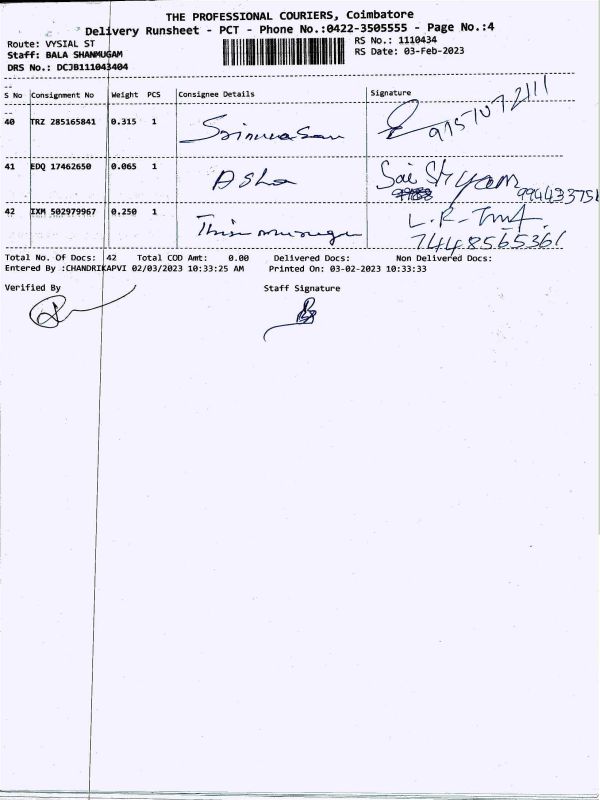 THE PROFESSIONAL COURIERS, Coimbatore
Delivery Runsheet - PCT - Phone No.:0422-3505555 - Page No.:4
Route: VYSIAL ST
RS No.: 1110434
Staff: BALA SHANMUGAM
RS Date: 03-Feb-2023
DRS No.: DCJB111043404
S No Consignment No Weight PCS Consignee Details Signature
40 TRZ 285165841 0.315 1 Srinivasan
41 EDQ 17462650 0.065 1 Asha Sai Shyam
42 IXM 502979967 0.250 1 L.R-
7448565361
Total No. Of Docs: 42 Total COD Amt: 0.00 Delivered Docs: Non Delivered Docs:
Entered By :CHANDRIKAPVI 02/03/2023 10:33:25 AM Printed On: 03-02-2023 10:33:33
Verified By Staff Signature